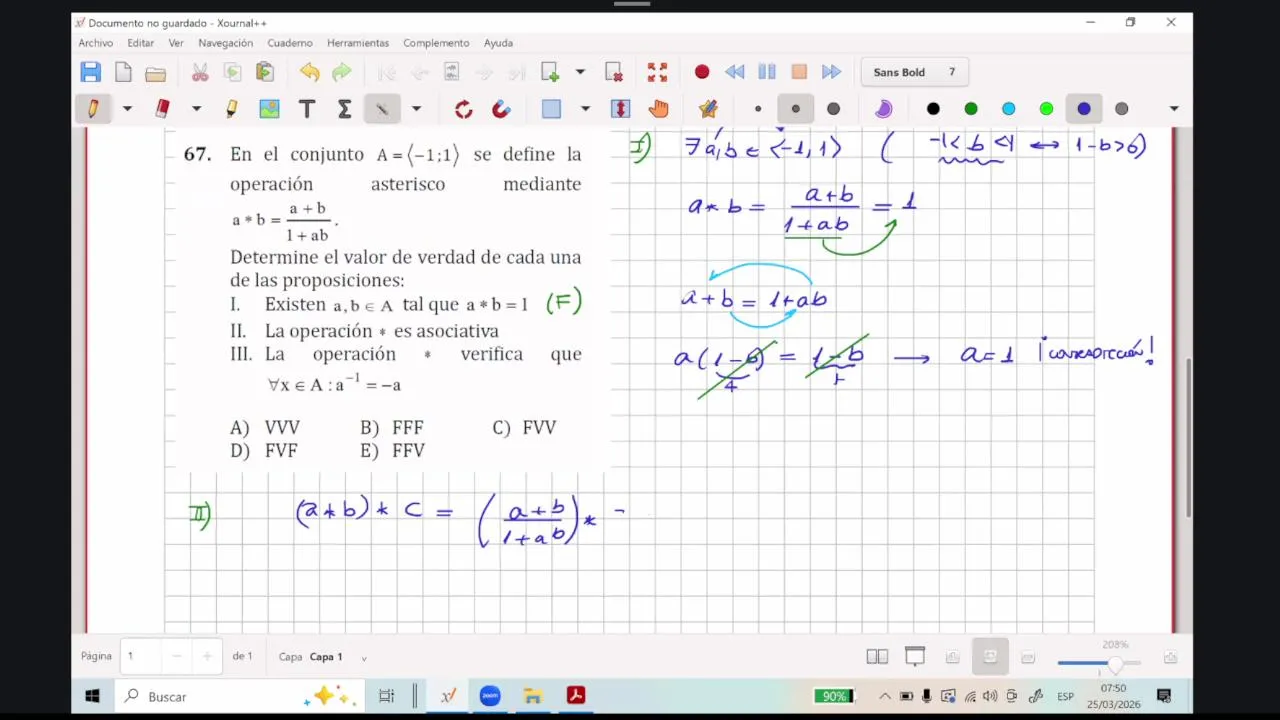 Documento no guardado - Xournal++
Archivo Editar Ver Navegación Cuaderno Herramientas Complemento Ayuda
Sans Bold 7
67. En el conjunto A = ⟨−1;1⟩ se define la
operación asterisco mediante
a * b = (a + b)/(1 + ab).
Determine el valor de verdad de cada una
de las proposiciones:
I. Existen a, b ∈ A tal que a * b = 1 (F)
II. La operación * es asociativa
III. La operación * verifica que
∀x ∈ A : a⁻¹ = −a
A) VVV B) FFF C) FVV
D) FVF E) FFV
I) ∃ a, b ∈ ⟨-1, 1⟩ ( -1 < b < 1 ↔ 1-b > 0)
a * b = (a+b)/(1+ab) = 1
a + b = 1+ab
a(1-b) = 1-b → a = 1 ¡contradicción!
+ +
II) (a * b) * c = ((a+b)/(1+ab)) *
Página 1 de 1 Capa Capa 1 208%
Buscar zoom 90% ESP 07:50
25/03/2026